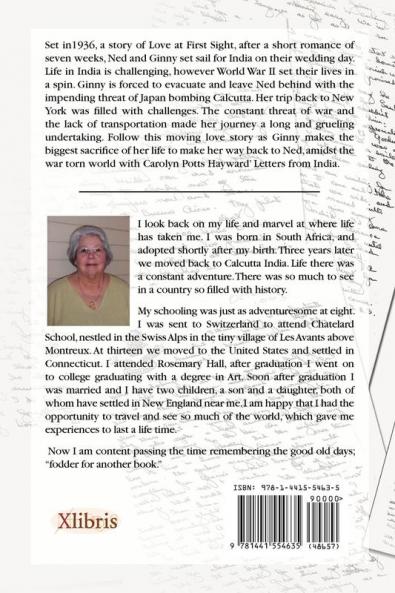 Set in1936, a story of Love at First Sight, after a short romance of
seven weeks, Ned and Ginny set sail for India on their wedding day.
Life in India is challenging, however World War II set their lives in
a spin. Ginny is forced to evacuate and leave Ned behind with the
impending threat of Japan bombing Calcutta. Her trip back to New
York was filled with challenges. The constant threat of war and
the lack of transportation made her journey a long and grueling
undertaking. Follow this moving love story as Ginny makes the
biggest sacrifice of her life to make her way back to Ned, amidst the
war torn world with Carolyn Potts Hayward' Letters from India.
I look back on my life and marvel at where life
has taken me. I was born in South Africa, and
adopted shortly after my birth. Three years later
we moved back to Calcutta India. Life there was
a constant adventure. There was so much to see
in a country so filled with history.
My schooling was just as adventuresome at eight.
I was sent to Switzerland to attend Chatelard
School, nestled in the Swiss Alps in the tiny village of Les Avants above
Montreux. At thirteen we moved to the United States and settled in
Connecticut. I attended Rosemary Hall, after graduation I went on
to college graduating with a degree in Art. Soon after graduation I
was married and I have two children, a son and a daughter, both of
whom have settled in New England near me. I am happy that I had the
opportunity to travel and see so much of the world, which gave me
experiences to last a life time.
Now I am content passing the time remembering the good old days;
"fodder for another book."
ISBN: 978-1-4415-5463-5
90000>
Xlibris
9 781441 554635 (48657)